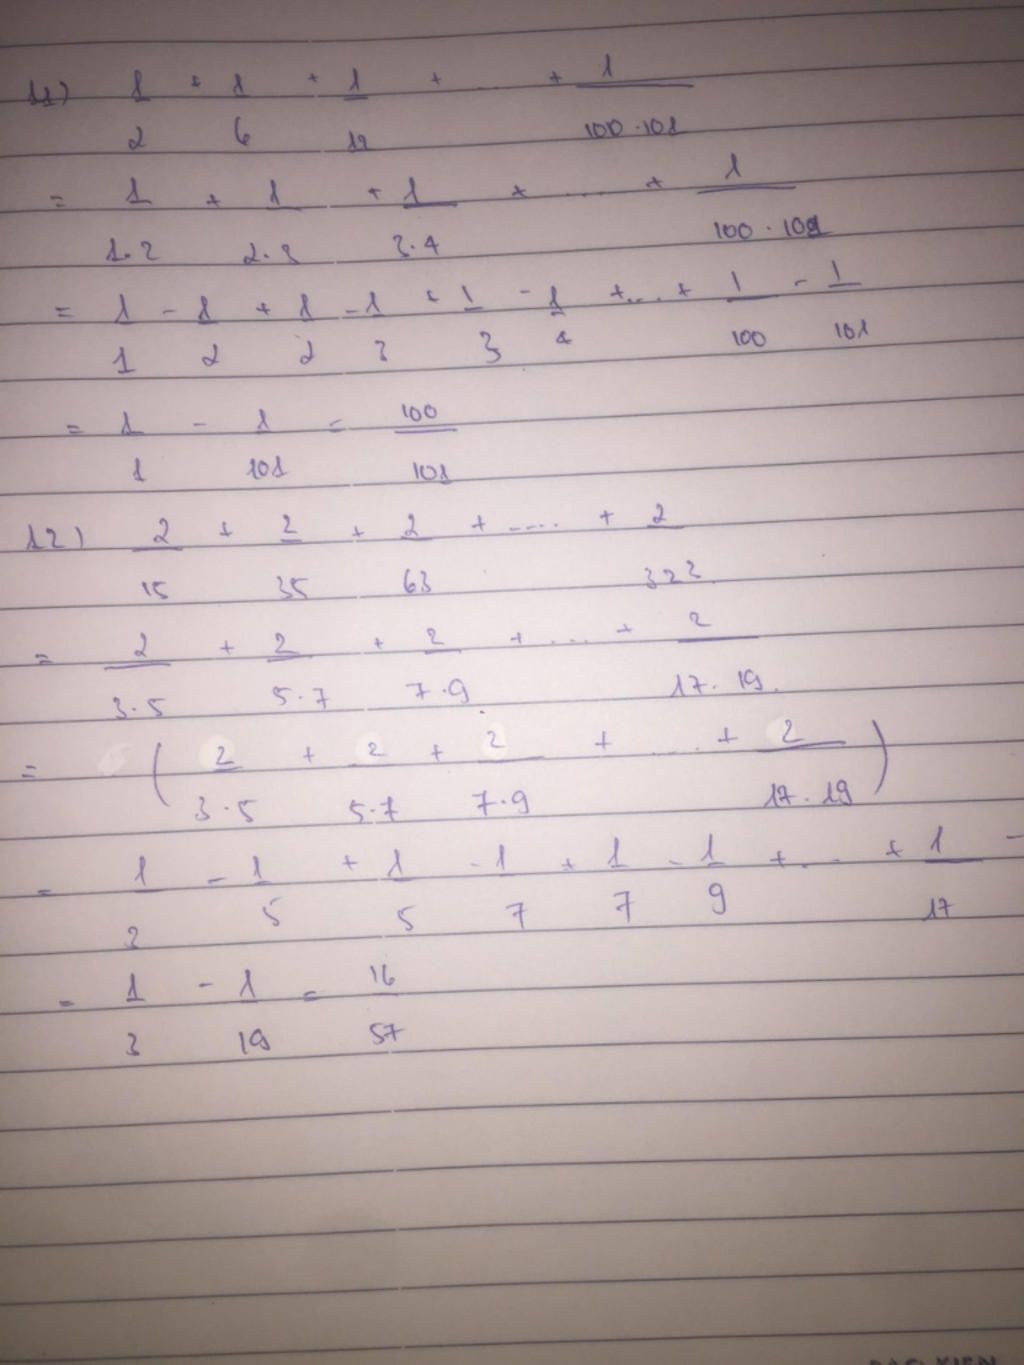 11) 1/2 + 1/6 + 1/12 + ... + 1/100.101
= 1/1.2 + 1/2.3 + 1/3.4 + ... + 1/100.101
= 1/1 - 1/2 + 1/2 - 1/3 + 1/3 - 1/4 + ... + 1/100 - 1/101
= 1/1 - 1/101 = 100/101
12) 2/15 + 2/35 + 2/63 + .... + 2/323
= 2/3.5 + 2/5.7 + 2/7.9 + ... + 2/17.19
= ( 2/3.5 + 2/5.7 + 2/7.9 + ... + 2/17.19 )
= 1/3 - 1/5 + 1/5 - 1/7 + 1/7 - 1/9 + ... + 1/17 -
= 1/3 - 1/19 = 16/57